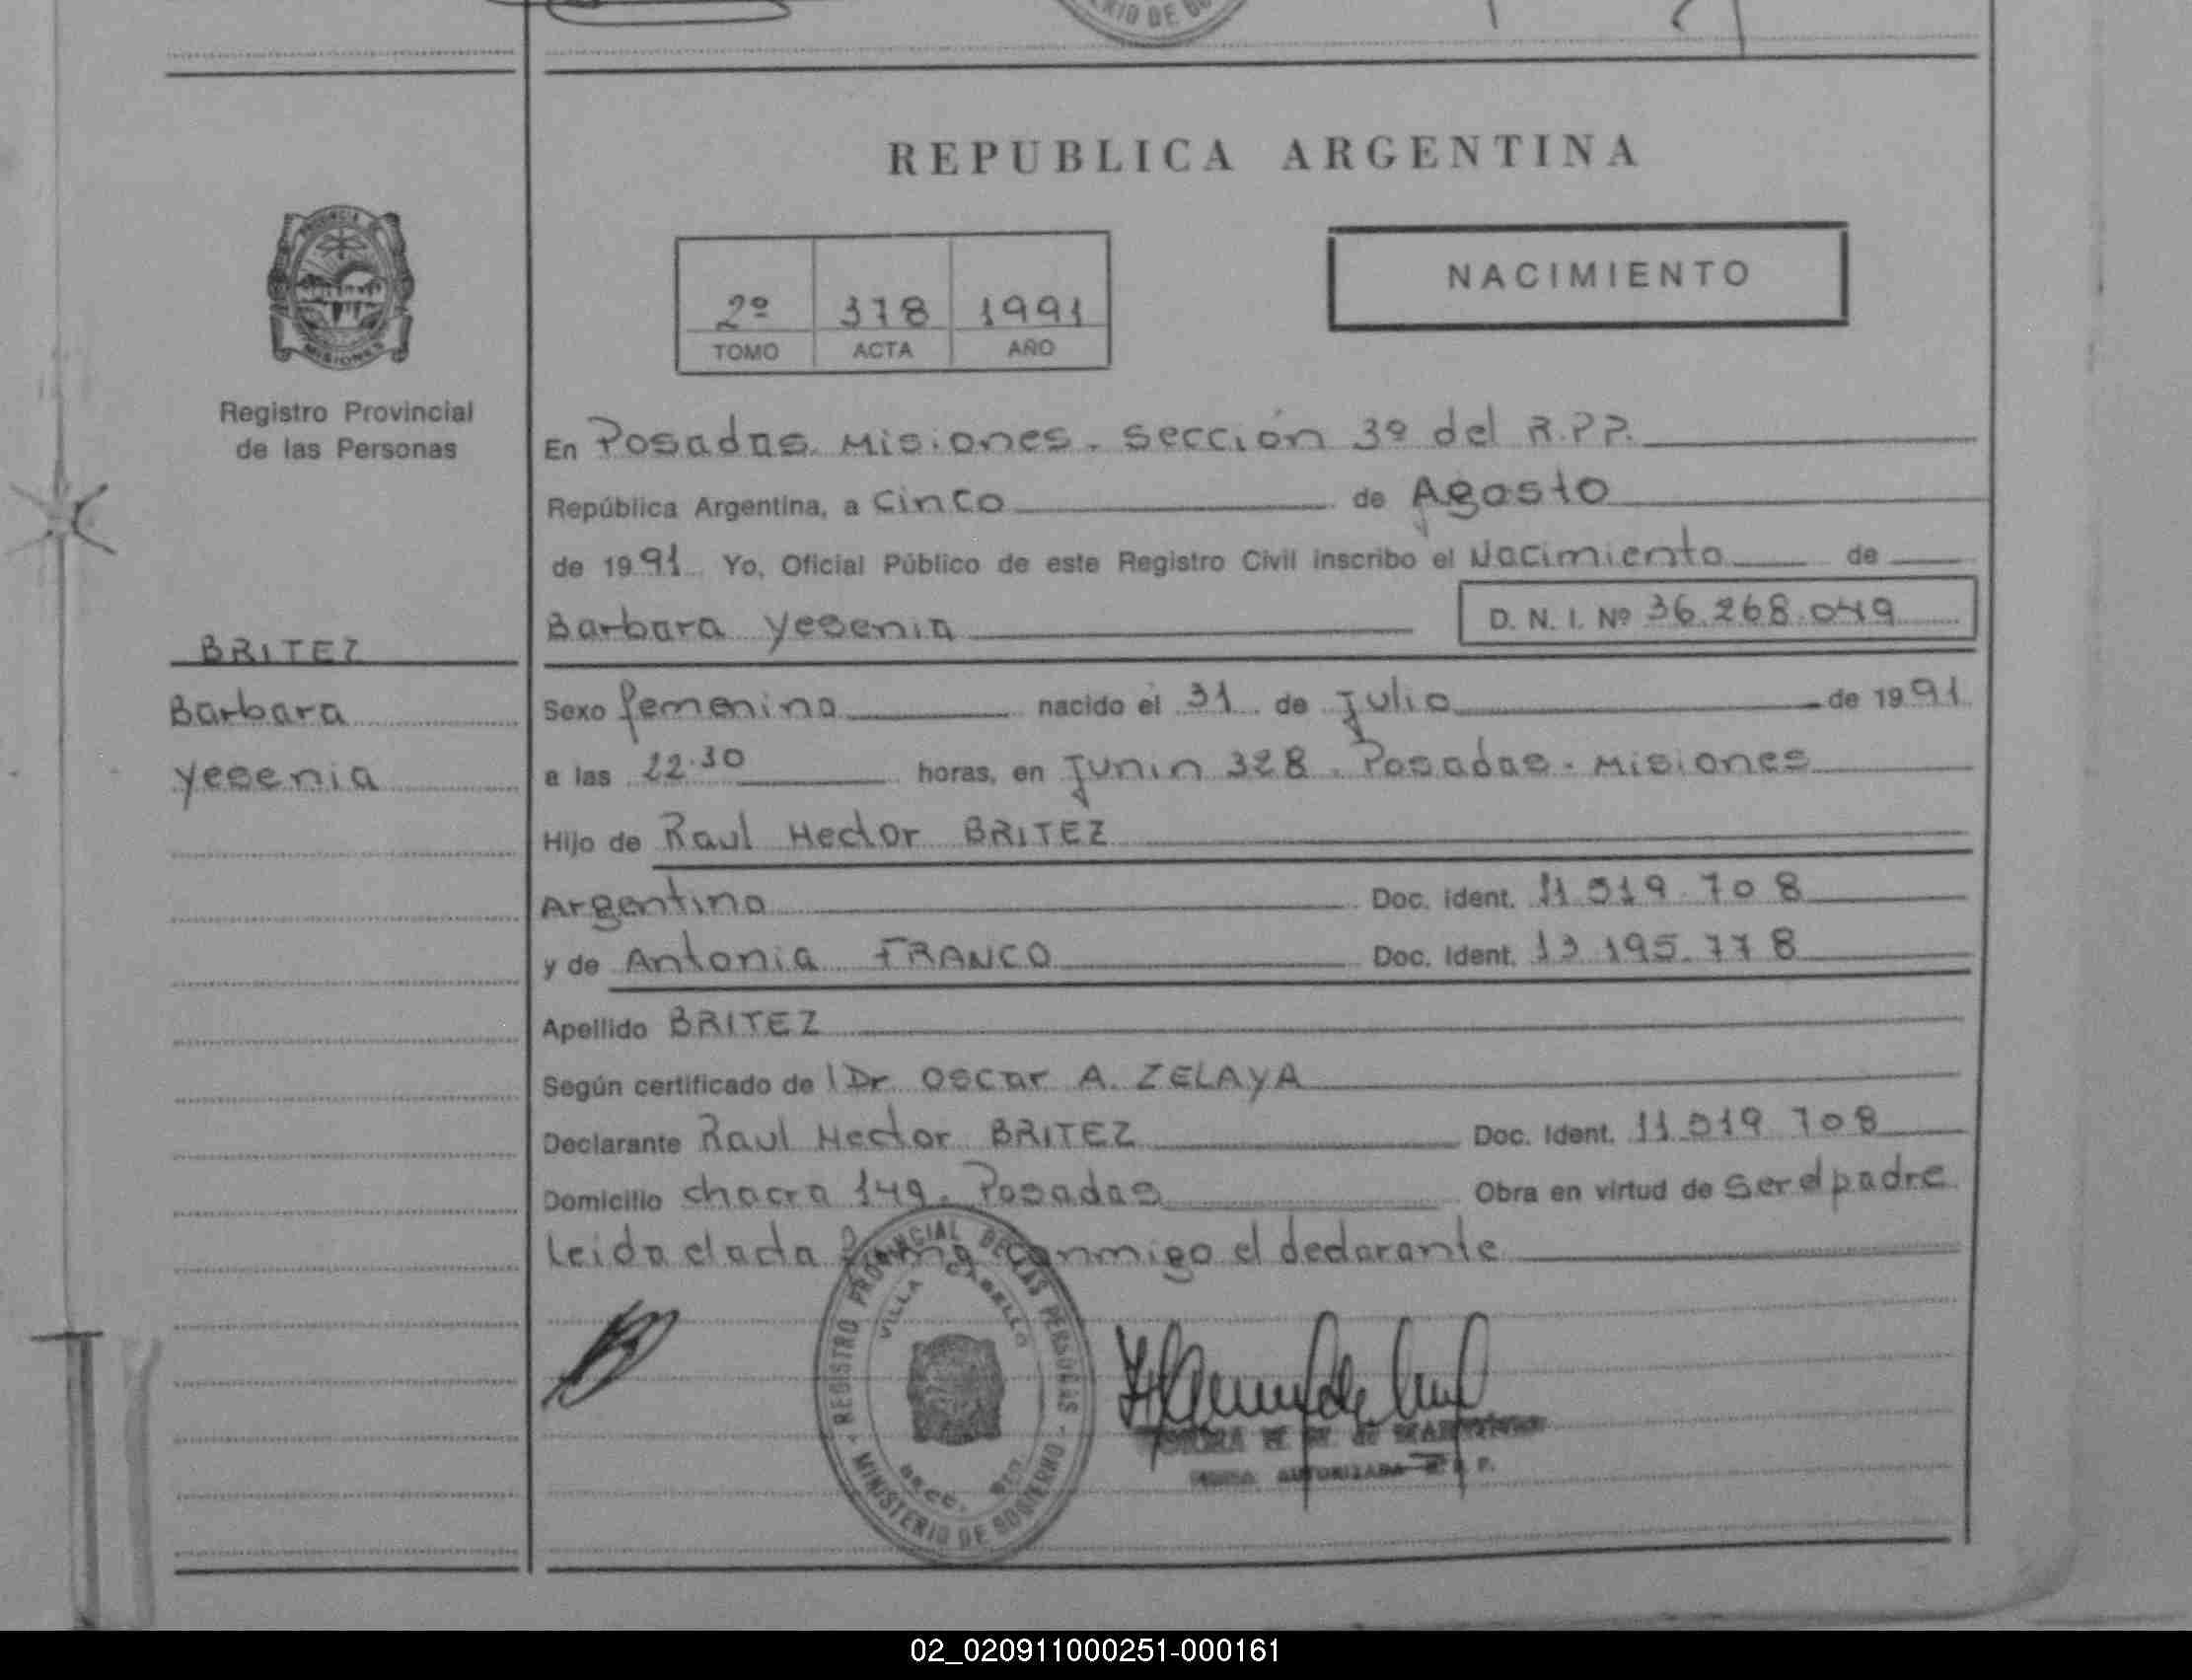 REPUBLICA ARGENTINA
NACIMIENTO
2º 378 1991
TOMO ACTA AÑO
PROVINCIA
MISIONES
Registro Provincial
de las Personas
BRITEZ
Barbara
Yesenia
En Posadas. Misiones. Sección 3º del R.P.P.
República Argentina, a Cinco de Agosto
de 1991 Yo, Oficial Público de este Registro Civil inscribo el Nacimiento de
Barbara Yesenia D. N. I. Nº 36.268.049
Sexo femenino nacido el 31 de Julio de 1991
a las 22.30 horas, en Junin 328. Posadas. Misiones
Hijo de Raul Hector BRITEZ
Argentino Doc. Ident. 11.519.708
y de Antonia FRANCO Doc. Ident. 13.195.778
Apellido BRITEZ
Según certificado de l Dr Oscar A. ZELAYA
Declarante Raul Hector BRITEZ Doc. Ident. 11 519 708
Domicilio chacra 149. Posadas Obra en virtud de ser el padre
Leida el acta firma conmigo el declarante
REGISTRO PROVINCIAL DE LAS PERSONAS
VILLA CABELLO
MINISTERIO DE GOBIERNO
AUTORIZADA
02_020911000251-000161